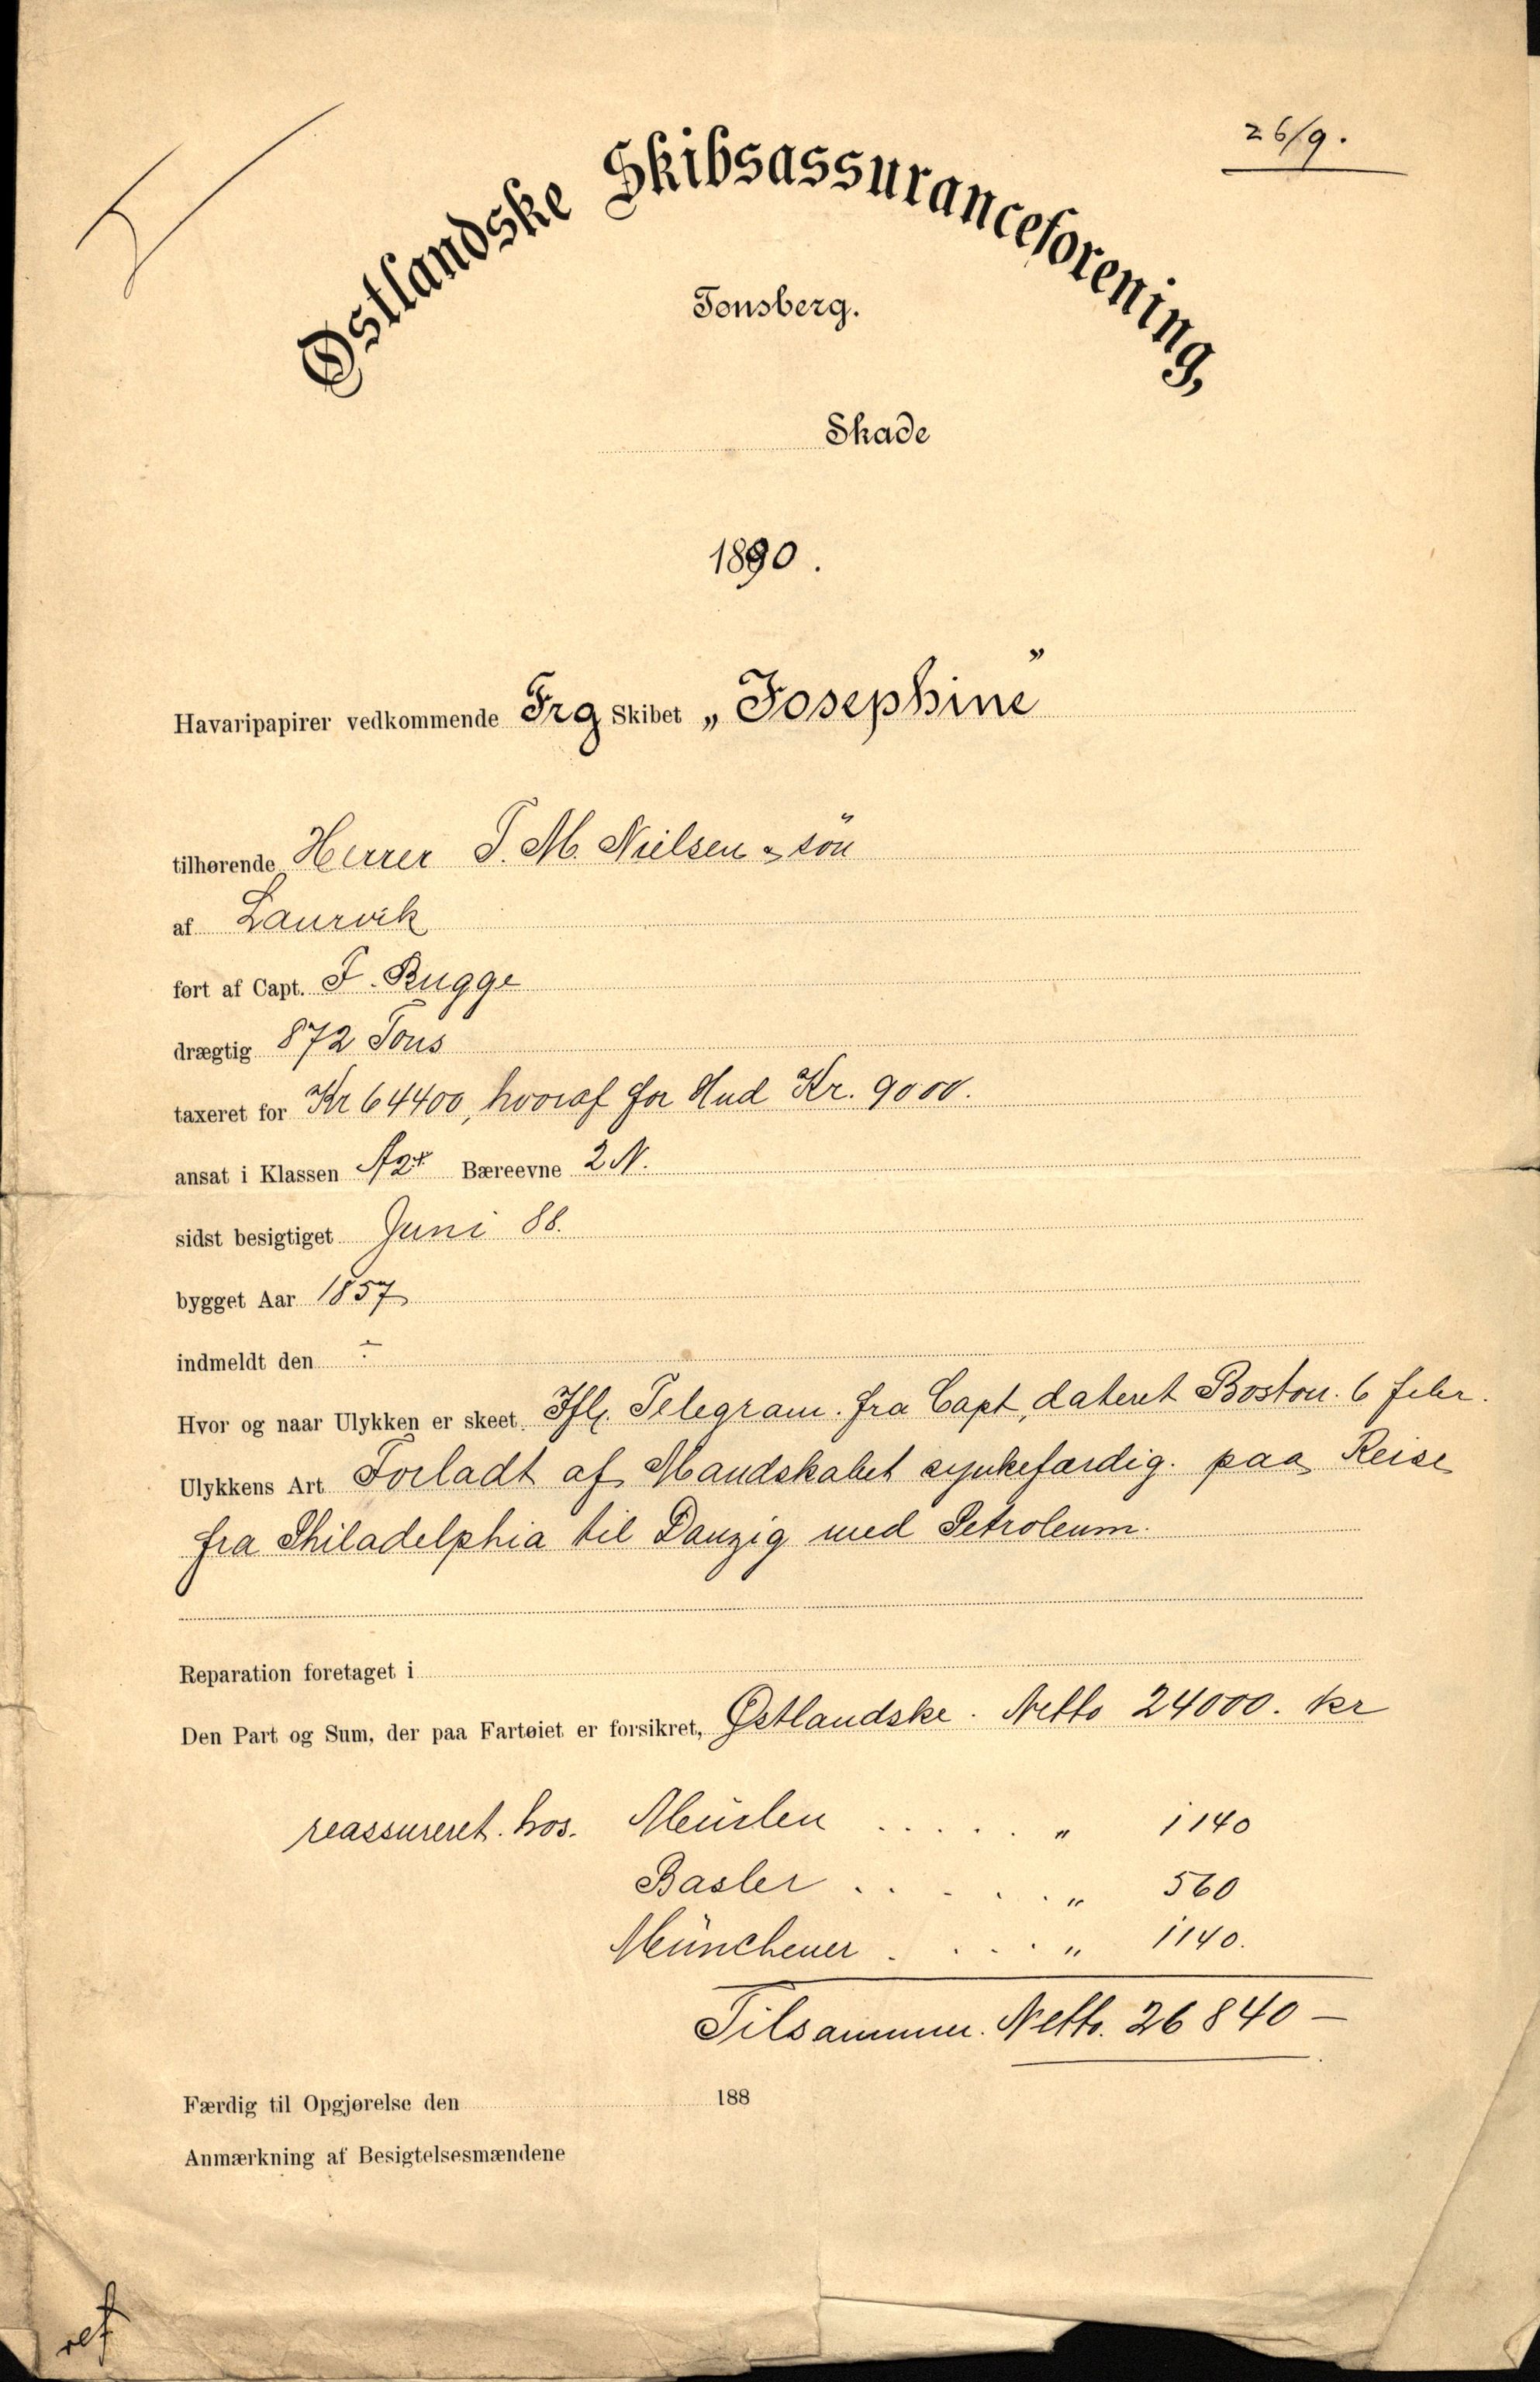 26/9.
Østlandske Skibsassuranceforening,
Tønsberg.
Skade
1890.
Havaripapirer vedkommende Frg Skibet „Josephine"
tilhørende Herrer P. M. Nielsen & sön
af Laurvik
ført af Capt. F. Bugge
drægtig 872 Tons
taxeret for Kr 64400, hvoraf for Hud Kr. 9000.
ansat i Klassen A2 Bæreevne 2 N.
sidst besigtiget Juni 88.
bygget Aar 1857
indmeldt den ÷
Hvor og naar Ulykken er skeet Ifl. Telegram. fra Capt, dateret Boston. 6 febr.
Ulykkens Art Forladt af Mandskabet synkefærdig. paa Reise
fra Philadelphia til Danzig med Petroleum.
Reparation foretaget i
Den Part og Sum, der paa Fartøiet er forsikret, Østlandske. Netto 24000. kr
reassureret. hos. ..... " 1140
Basler ..... " 560
Münchener .... " 1140.
Tilsammen. Netto. 26840 —
Færdig til Opgjørelse den 188
Anmærkning af Besigtelsesmændene
ref